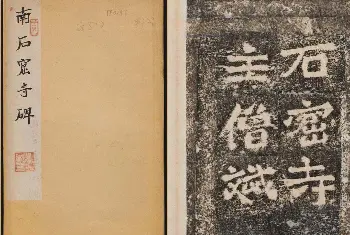 南石窟寺碑
石窟寺
主僧斌